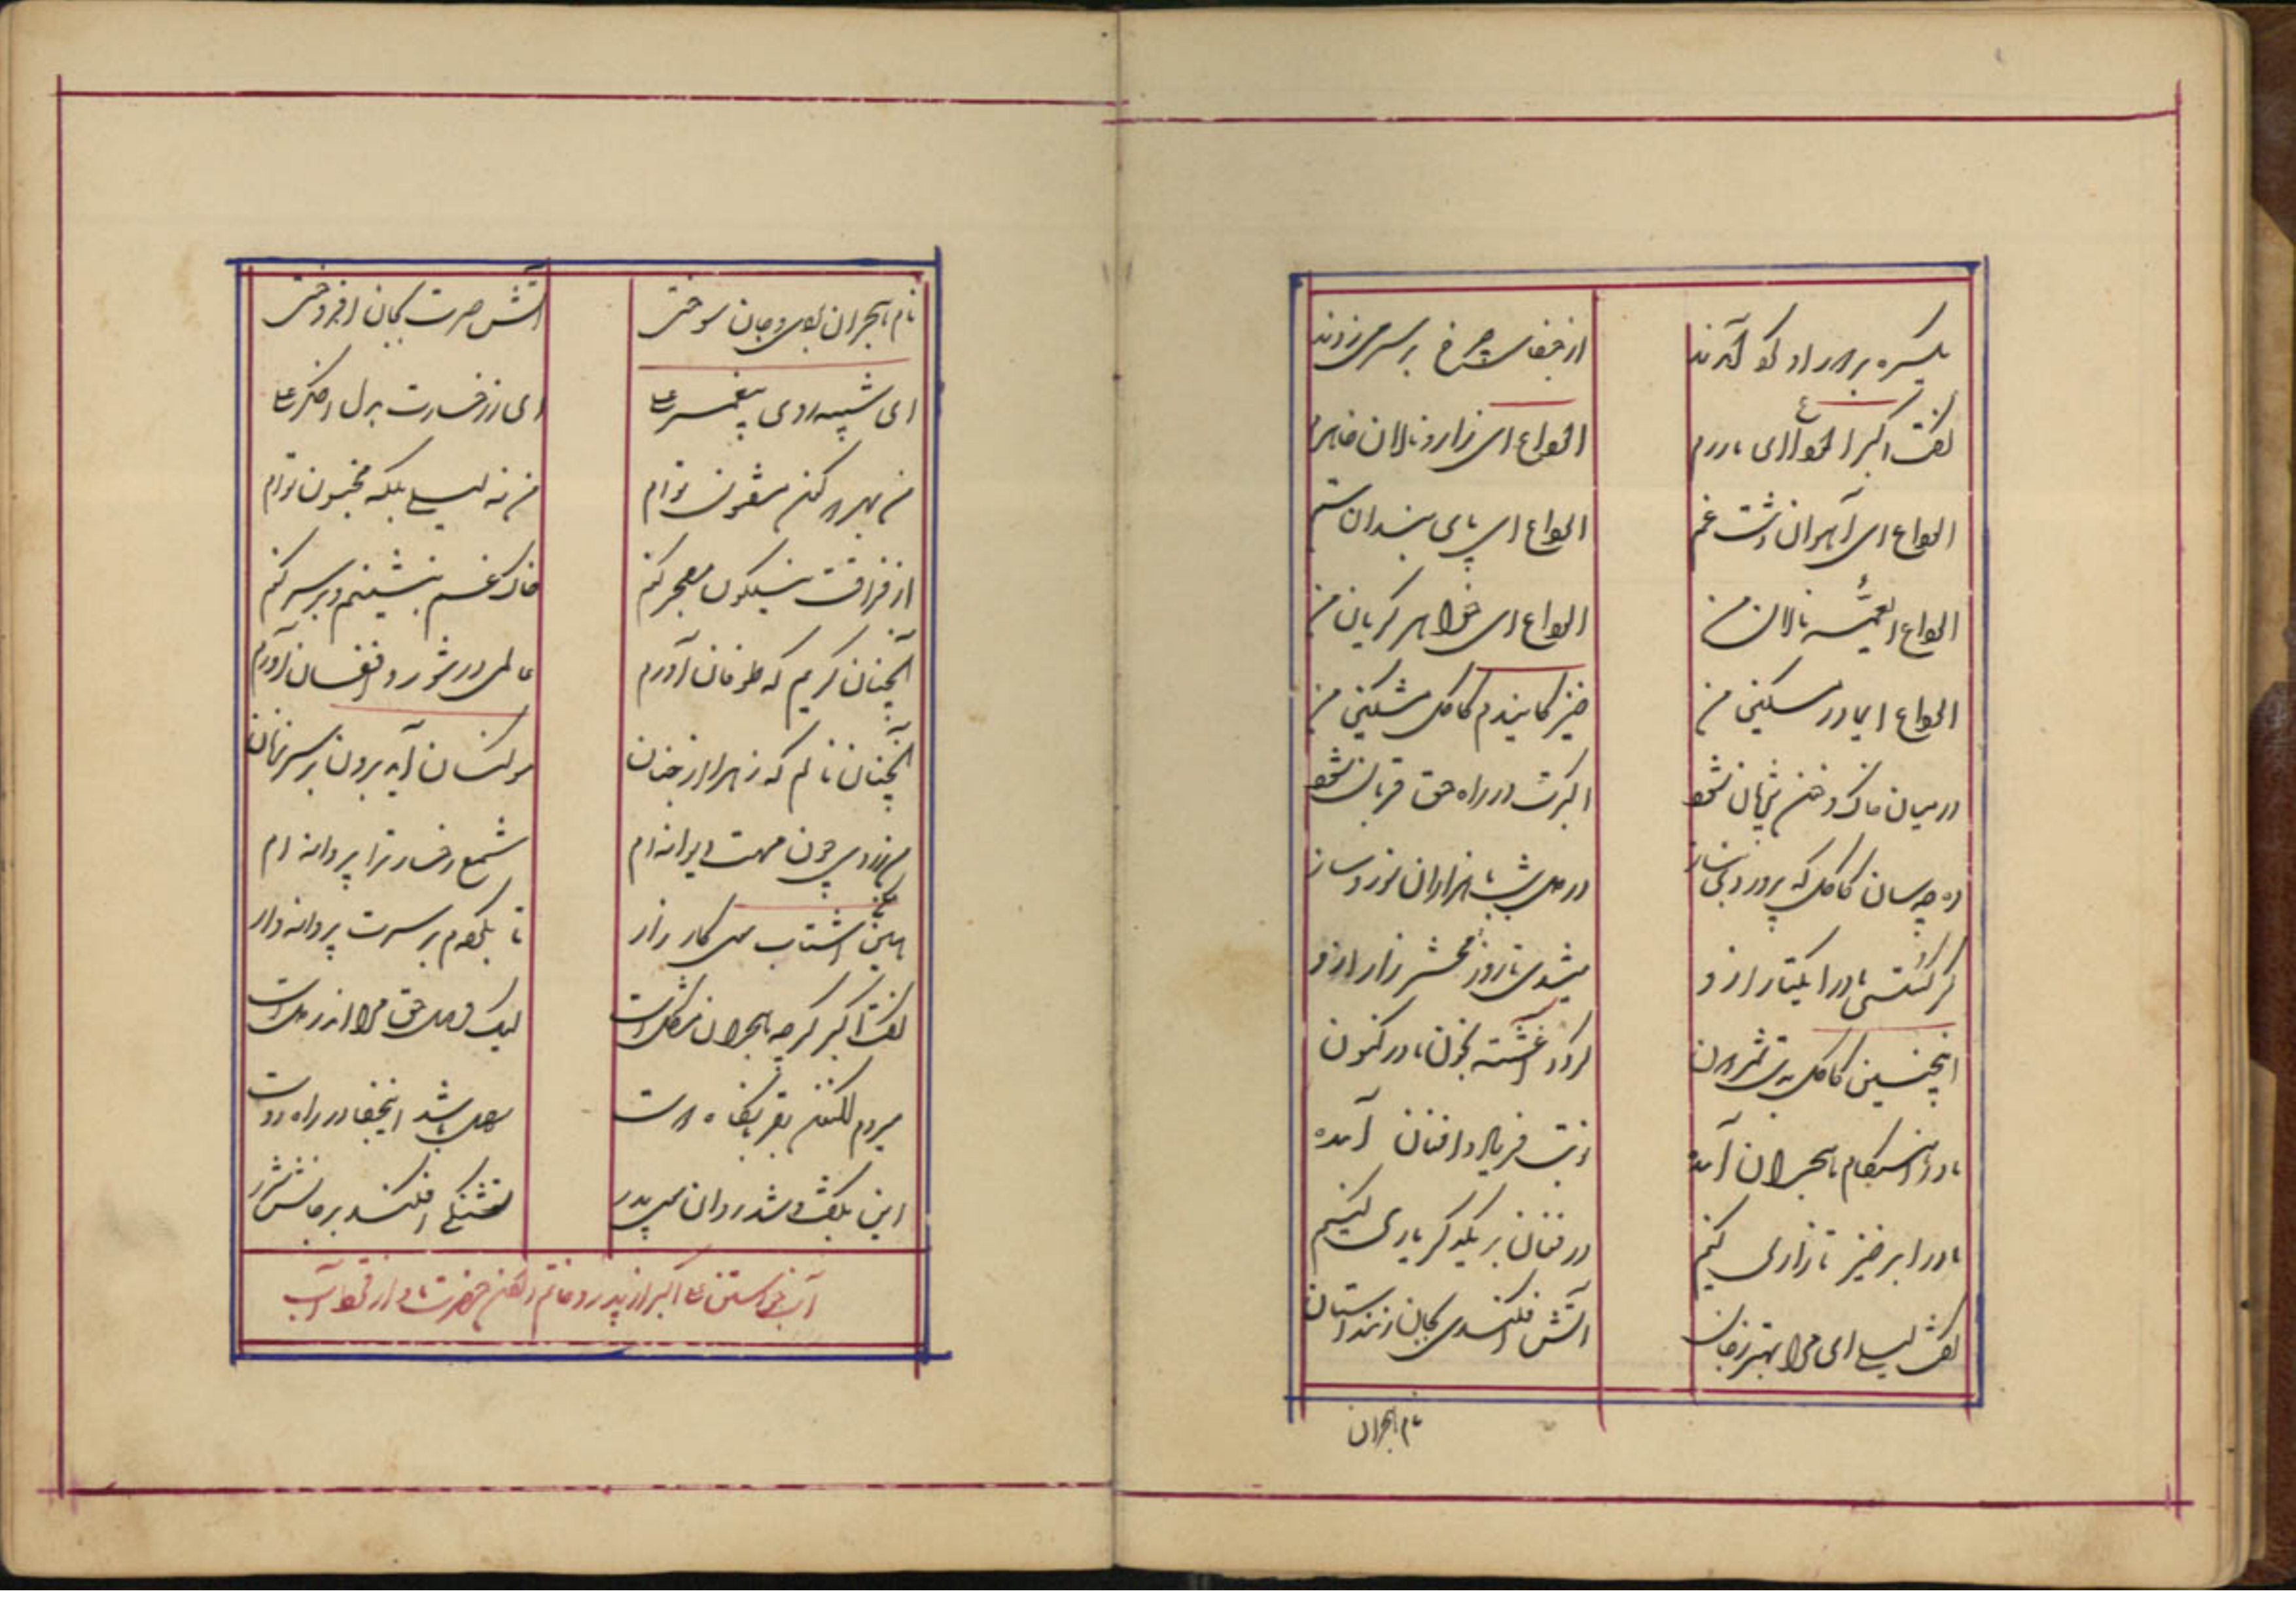 یکسره بر دور او گرد آمدند از جفای چرخ بر سر می‌زدند
گفت اکبر الوداع ای مادرم الوداع ای زار و نالان خواهرم
الوداع ای آهوان دشت غم الوداع ای پای بندان ستم
الوداع ای عمه نالان من الوداع ای خواهر گریان من
الوداع ای مادر مسکین من خیز کایندم کاکل مشکین من
در میان خاک و خون پنهان شود اکبرت در راه حق قربان شود
وه چه سان کاکل که پروردی بناز در دل شب با هزاران سوز و ساز
گر گسستی مادرا یکتار از او میشدی تا روز محشر زار از او
اینچنین کاکل گردد آغشته بخون مادر کنون
مادرا هنگام هجران آمده نوبت فریاد و افغان آمده
مادرا برخیز تا زاری کنیم در فغان بر یکدیگر یاری کنیم
گفت لیلی ای مرا بهتر ز جان آتش افکندی بجان زین داستان
نام هجران
نام هجران بردی و جان سوختی آتش حسرت بجان افروختی
ای شبیه روی پیغمبر علی ای ز رخسارت بدل اخگر علی
من بهر مفتون توام من نه لیلی بلکه مجنون توام
از فراقت نیلگون معجر کنم خاک غم بنشینم و بر سر کنم
آنچنان گریم که طوفان آورم عالمی در شور و افغان آورم
آنچنان نالم که زهرا از جنان موکنان آید برون بر سر زنان
من ز روی چون مهت دیوانه‌ام شمع رخسار ترا پروانه‌ام
هین مکن اشتاب سوی کارزار تا بگردم بر سرت پروانه‌وار
گفت اکبر گرچه هجران مشکل است لیک وصل حق مرا اندر دل است
میروم سهل باشد اینجفا در راه دوست
این بگفت و شد روان سوی پدر تشنگی افکند بر جانش شرر
آب خواستن علی اکبر از پدر و خاتم دادن حضرت باو از قحط آب